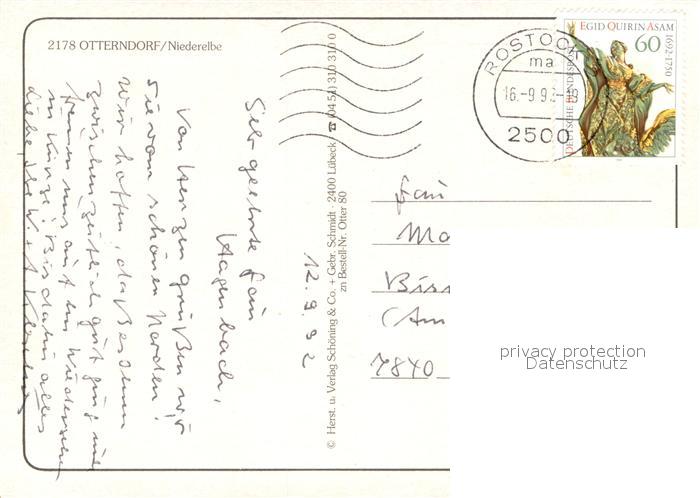 2178 OTTERNDORF/Niederelbe
12.9.92
Sehr geehrte Frau
Hagenbach,
Von Herzen grüßen wir
Sie vom schönen Norden!
Wir hoffen, daß es Ihnen
zwischenzeitlich gut geht und
freuen uns auf ein Wiedersehen
in Kürze. Bis dahin alles
Liebe Ihre W. + A.
© Herst. u. Verlag Schöning & Co. + Gebr. Schmidt · 2400 Lübeck · ☎ (04 51) 310 310 0
zu Bestell-Nr. Otter 80
ROSTOCK
ma
16.-9.92-19
2500
EGID QUIRIN ASAM
1692-1750
60
DEUTSCHE BUNDESPOST
Frau
Ma
Bis
(Am
7840
privacy protection
Datenschutz